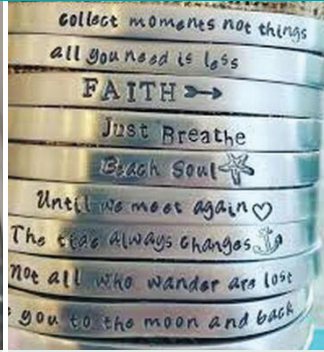 collect moments not things
all you need is less
FAITH
Just Breathe
Beach Soul
Until we meet again
The tide always changes
not all who wander are lost
you to the moon and back